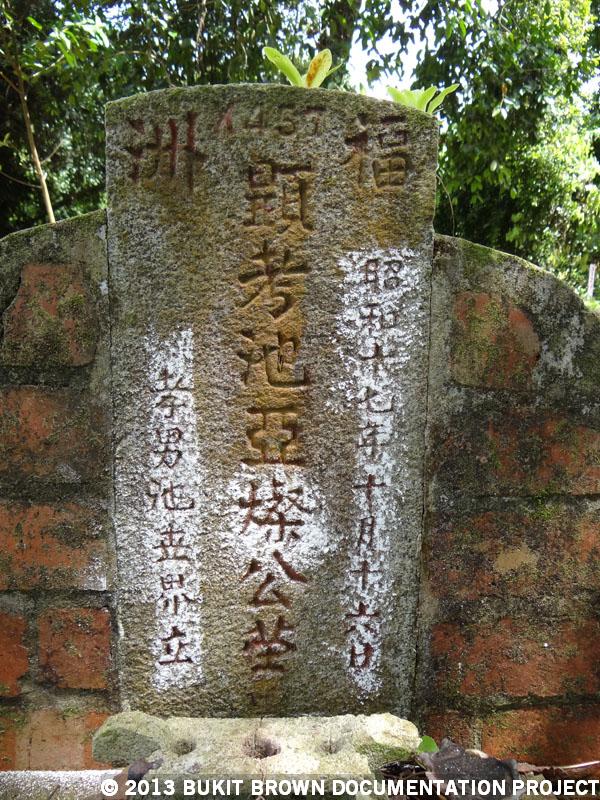 福洲
昭和十七年十月十六日
顕考池亞燦公塋
孝男池世界立
© 2013 BUKIT BROWN DOCUMENTATION PROJECT